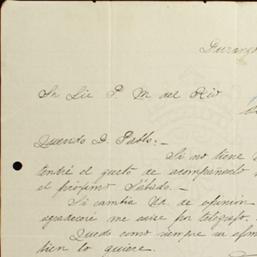 Durango
Sr Lic P. M. del Rio
Querido D. Pablo:-
Si no tiene
tendré el gusto de acompañarlo
el próximo Sábado.-
Si cambia Ud. de opinión
agradeceré me avise por telégrafo.
Quedo como siempre su afmo
bien lo quiere.